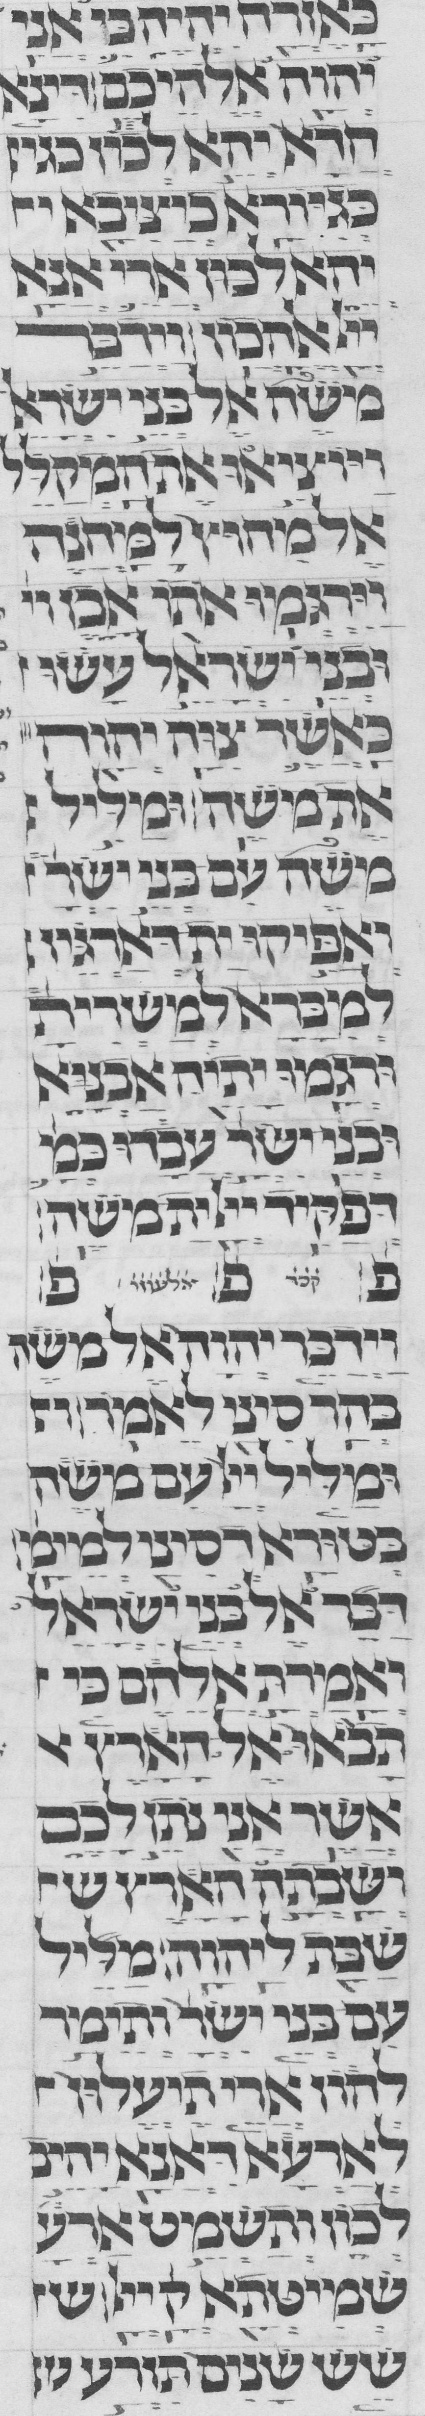 כאזרח יהיה כי אני
יהוה אלהיכם דינא
חדא יהא לכון כגיו
כגיורא כיציבא יה
יהא לכון ארי אנא
ייי אלהכון וידבר
משה אל בני ישראל
ויוציאו את המקלל
אל מחוץ למחנה
וירגמו אתו אבן וי
ובני ישראל עשו
כאשר צוה יהוה
את משה ומליל
משה עם בני ישר
ואפיקו ית דארגיזו
למברא למשרית
ורגמו יתיה אבניא
ובני ישר עבדו כמ
דפקיד ייי ית משה
פ קכד פ אלעוזו פ
וידבר יהוה אל משה
בהר סיני לאמר
ומליל ייי עם משה
בטורא דסיני למימ
דבר אל בני ישראל
ואמרת אלהם כי
תבאו אל הארץ
אשר אני נתן לכם
ושבתה הארץ ש
שבת ליהוה מליל
עם בני ישר ותימר
להון ארי תיעלון
לארעא דאנא יהיב
לכון ותשמט ארע
שמיטתא ק ייי ש
שש שנים תזרע